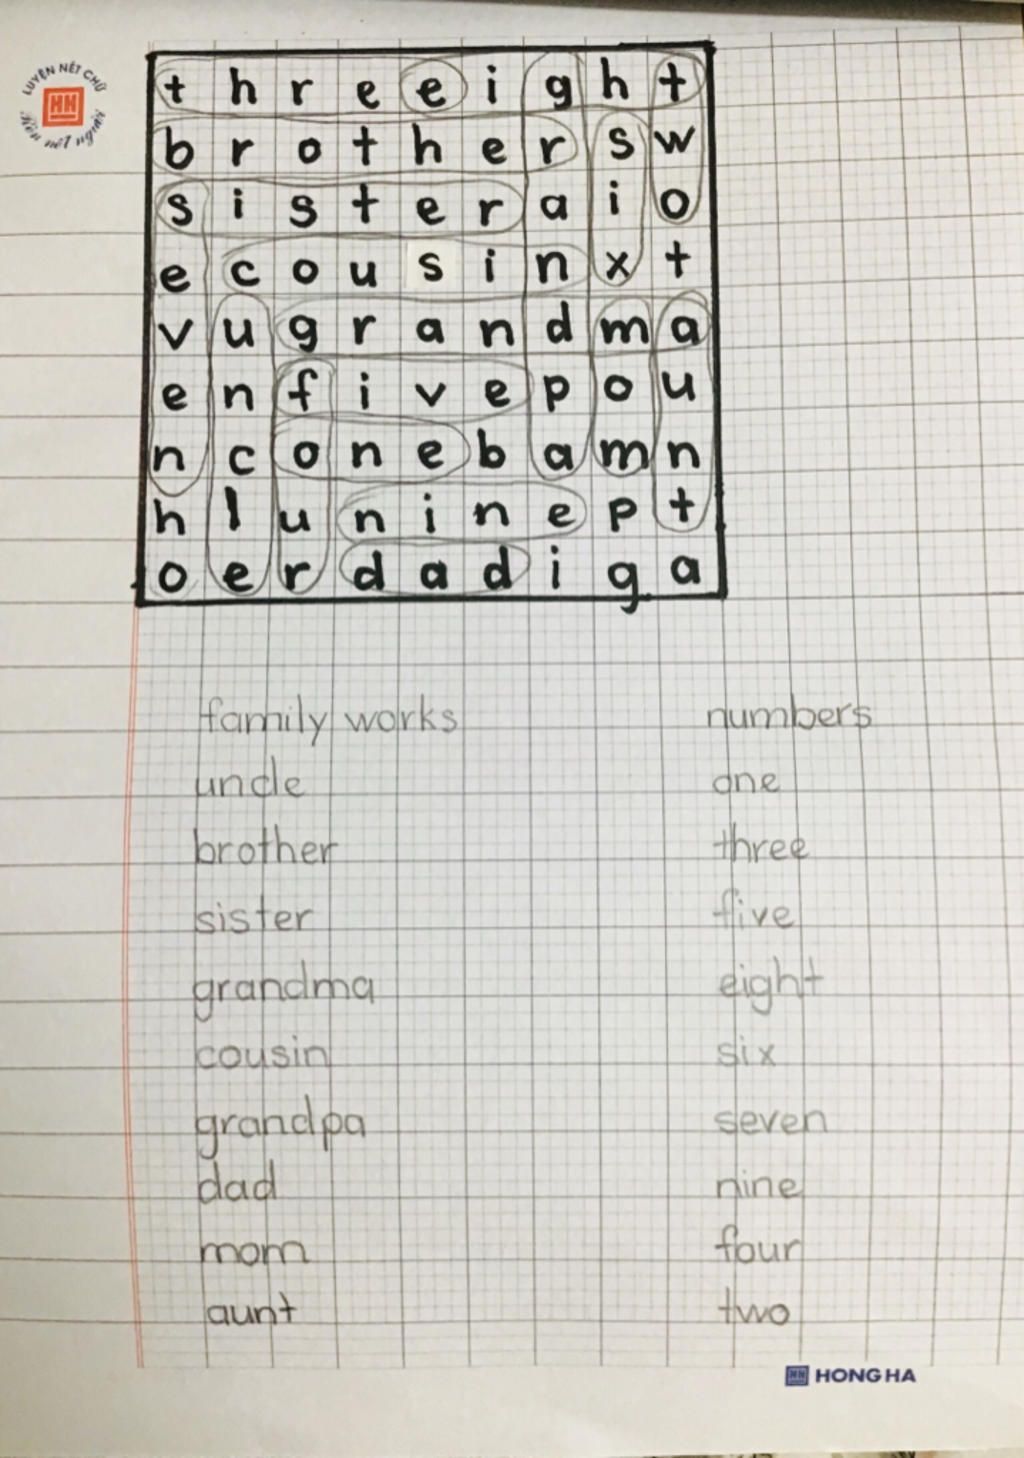 LUYỆN NÉT CHỮ
HH
Rèn nết người
t h r e e i g h t
b r o t h e r s w
s i s t e r a i o
e c o u s i n x t
v u g r a n d m a
e n f i v e p o u
n c o n e b a m n
h l u n i n e p t
o e r d a d i g a
family works numbers
uncle one
brother three
sister five
grandma eight
cousin six
grandpa seven
dad nine
mom four
aunt two
HH HONG HA